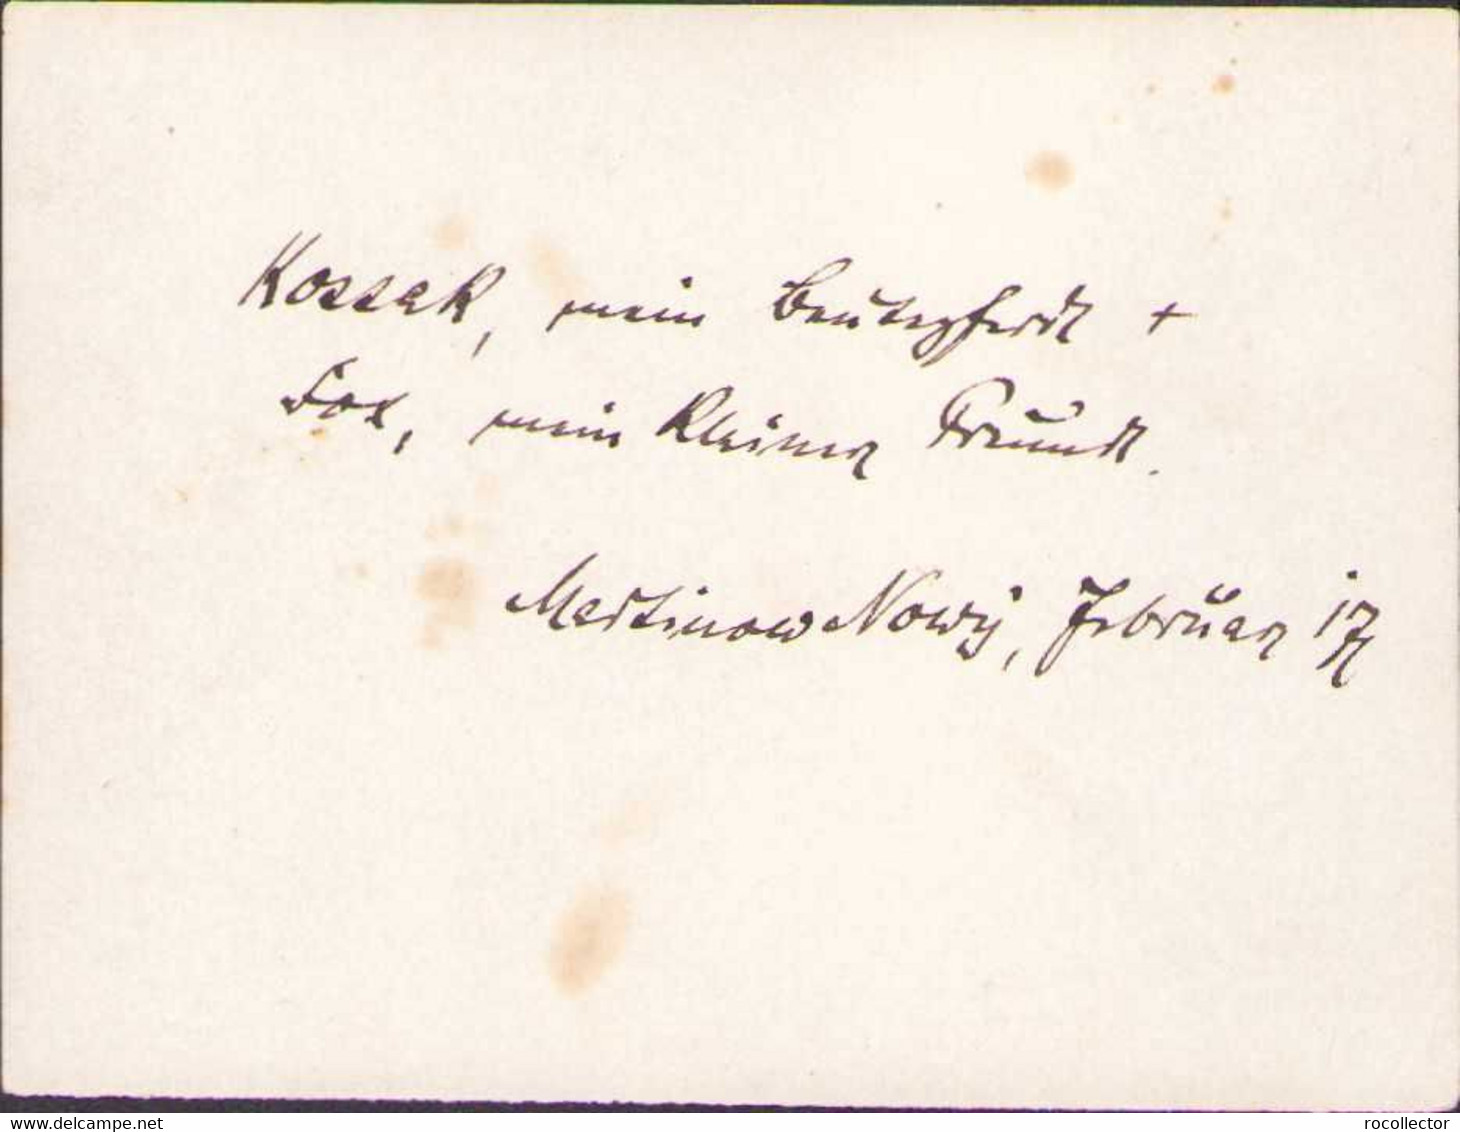 Kossak, mein Beutepferdl +
Fox, mein kleiner Freund.
Martinow Nowy, Februar 17
delcampe.net
rocollector